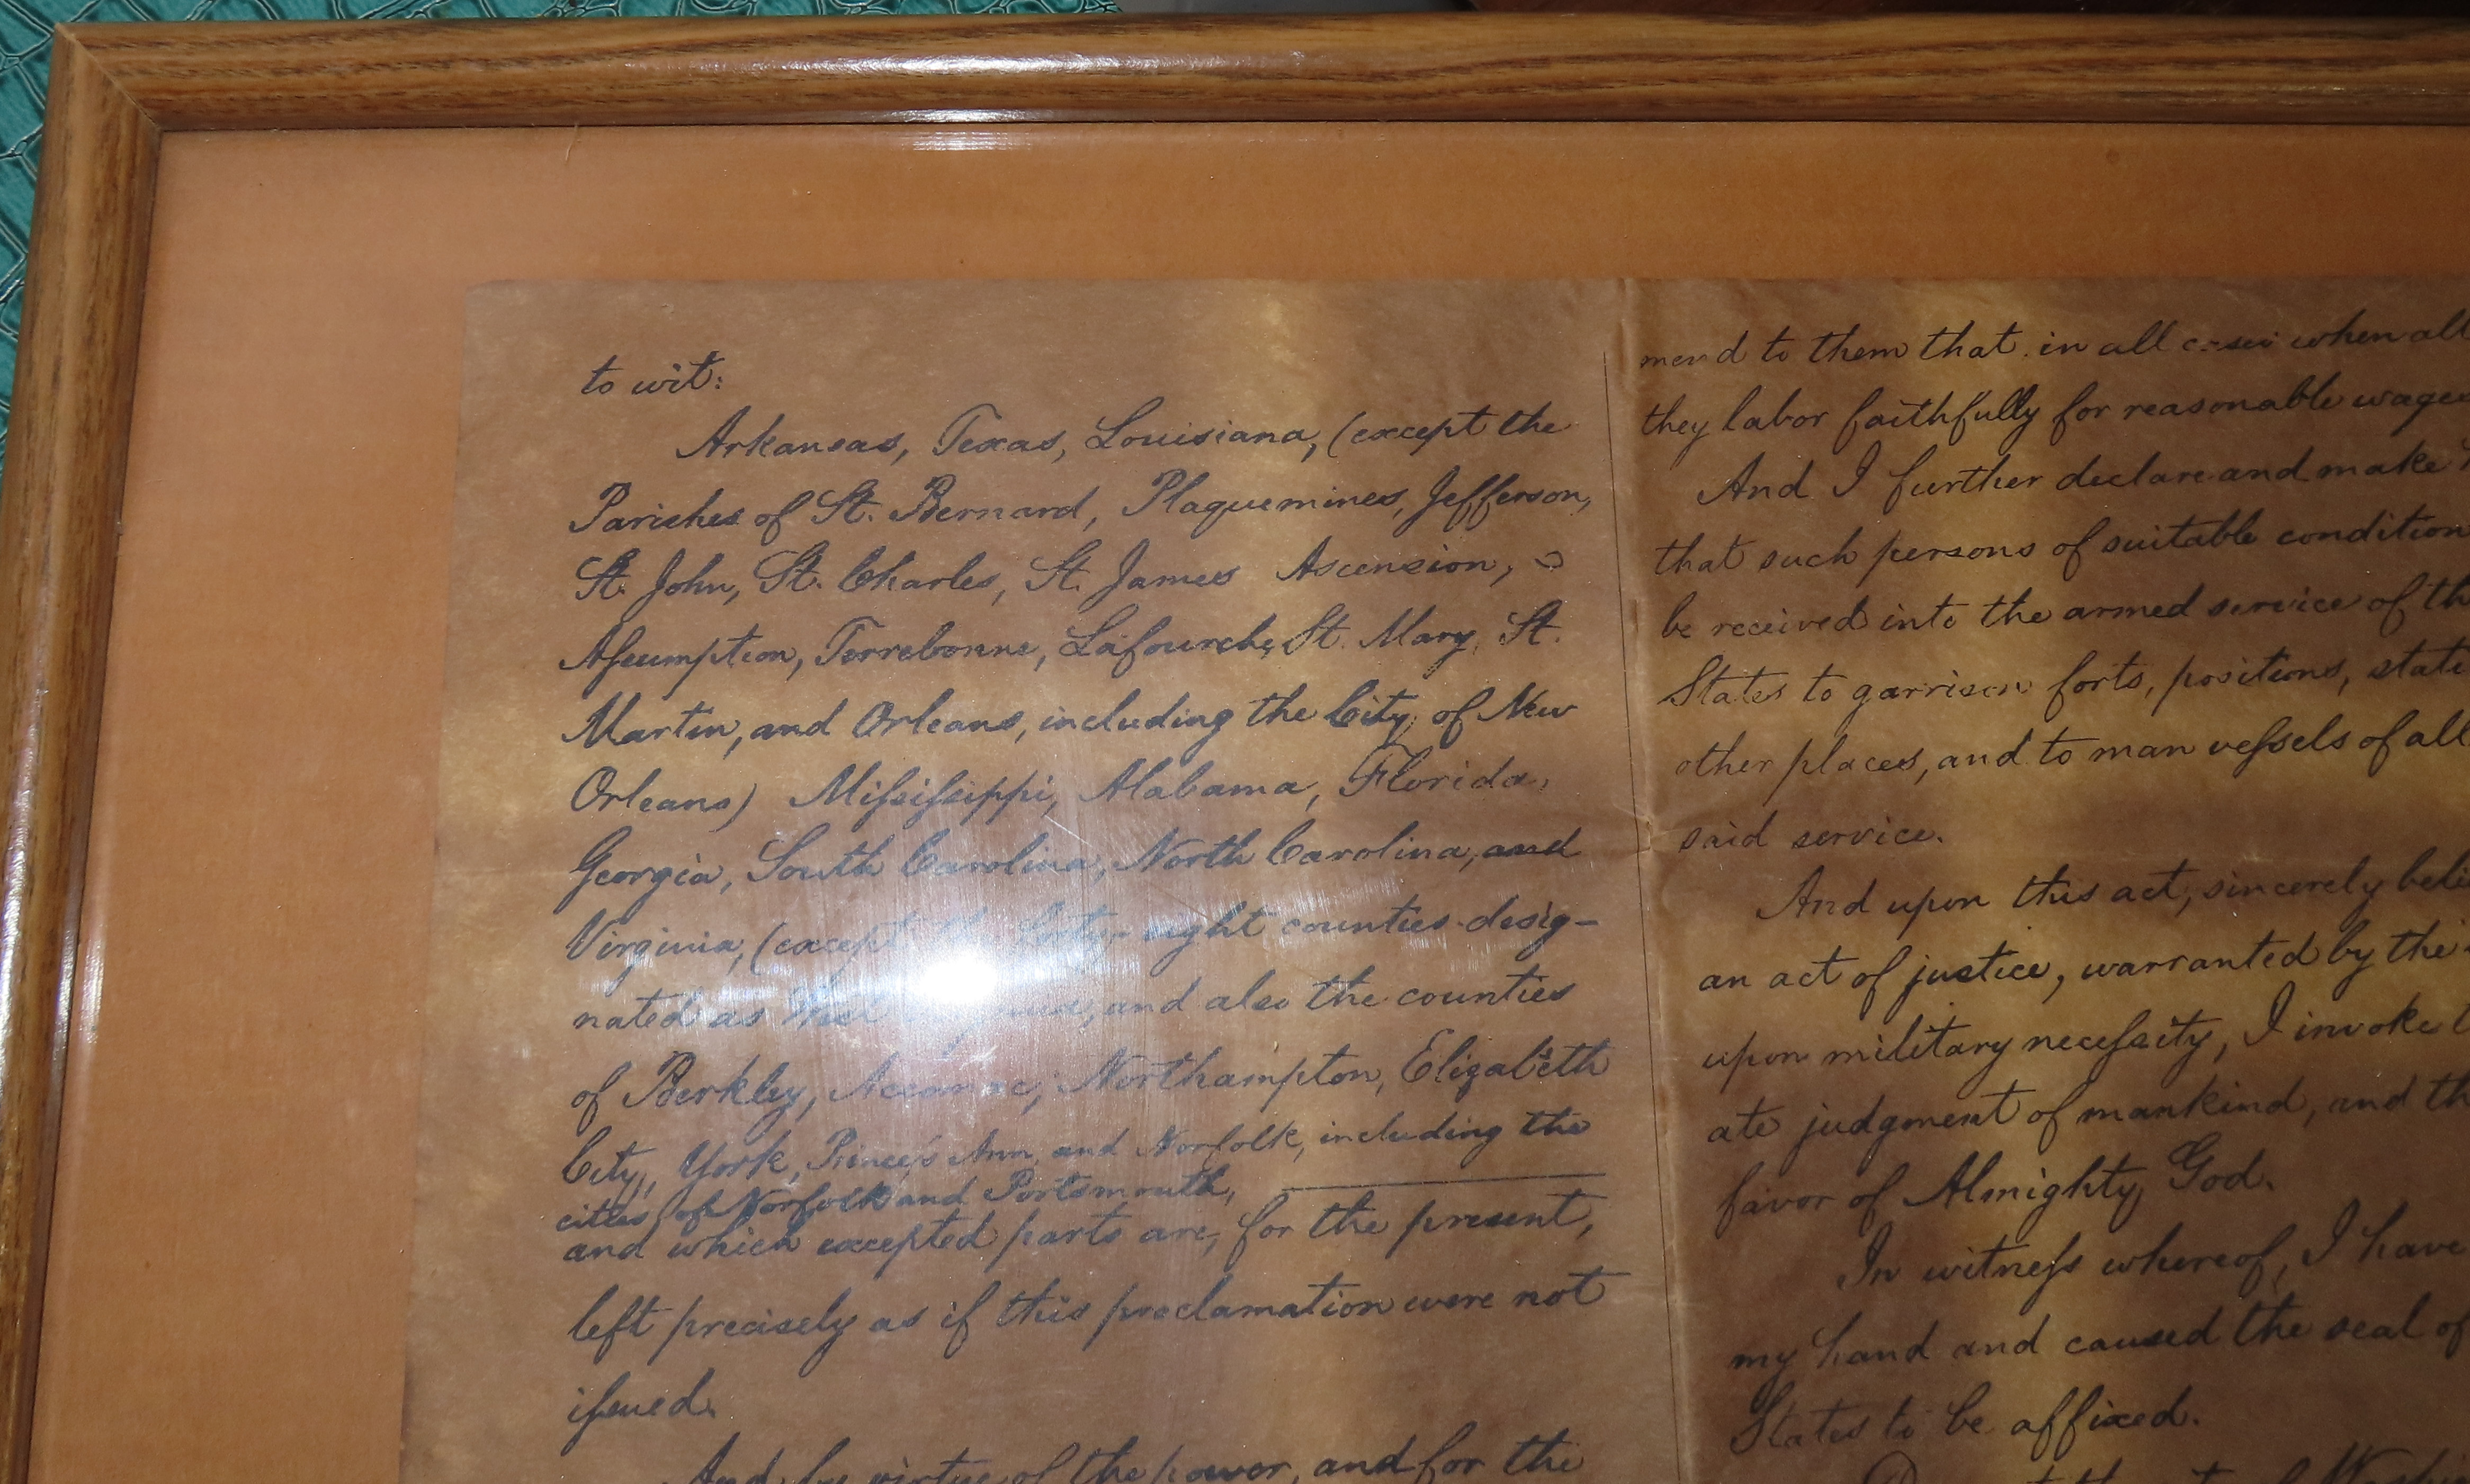 to wit:
Arkansas, Texas, Louisiana, (except the
Parishes of St. Bernard, Plaquemines, Jefferson,
St. John, St. Charles, St. James Ascension,
Aſsumption, Terrebonne, Lafourche, St. Mary, St.
Martin, and Orleans, including the City of New
Orleans) Miſsiſsippi, Alabama, Florida,
Georgia, South Carolina, North Carolina, and
Virginia, (except the forty-eight counties desig-
nated as West and also the counties
of Berkley, Accomac, Northampton, Elizabeth
City, York, Princeſs Ann, and Norfolk, including the
cities of Norfolk and Portsmouth,
and which excepted parts are, for the present,
left precisely as if this proclamation were not
iſsued.
And by virtue of the power, and for the
mend to them that in all cases when all
they labor faithfully for reasonable wages
And I further declare and make
that such persons of suitable condition
be received into the armed service of th
States to garrison forts, positions, stati
other places, and to man veſsels of all
said service.
And upon this act, sincerely beli
an act of justice, warranted by the
upon military neceſsity, I invoke t
ate judgment of mankind, and th
favor of Almighty God.
In witneſs whereof, I have
my hand and caused the seal of
States to be affixed.